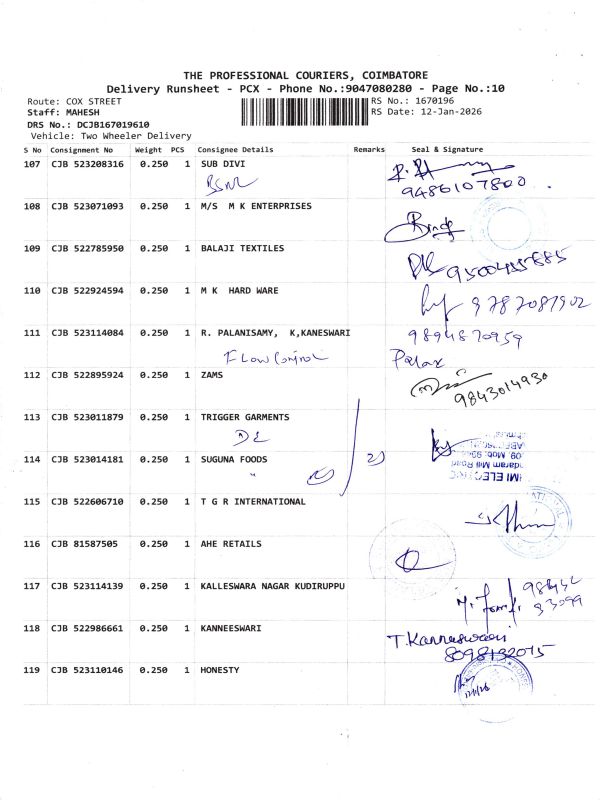 THE PROFESSIONAL COURIERS, COIMBATORE
Delivery Runsheet - PCX - Phone No.:9047080280 - Page No.:10
Route: COX STREET RS No.: 1670196
Staff: MAHESH RS Date: 12-Jan-2026
DRS No.: DCJB167019610
Vehicle: Two Wheeler Delivery
S No Consignment No Weight PCS Consignee Details Remarks Seal & Signature
107 CJB 523208316 0.250 1 SUB DIVI
BSNL 9486107800
108 CJB 523071093 0.250 1 M/S M K ENTERPRISES
109 CJB 522785950 0.250 1 BALAJI TEXTILES
110 CJB 522924594 0.250 1 M K HARD WARE
9787087902
111 CJB 523114084 0.250 1 R. PALANISAMY, K,KANESWARI 9894870959
Flow Control
112 CJB 522895924 0.250 1 ZAMS
9843014930
113 CJB 523011879 0.250 1 TRIGGER GARMENTS
DL
114 CJB 523014181 0.250 1 SUGUNA FOODS
115 CJB 522606710 0.250 1 T G R INTERNATIONAL
116 CJB 81587505 0.250 1 AHE RETAILS
117 CJB 523114139 0.250 1 KALLESWARA NAGAR KUDIRUPPU
118 CJB 522986661 0.250 1 KANNEESWARI T. Kanneswari
8098132075
119 CJB 523110146 0.250 1 HONESTY